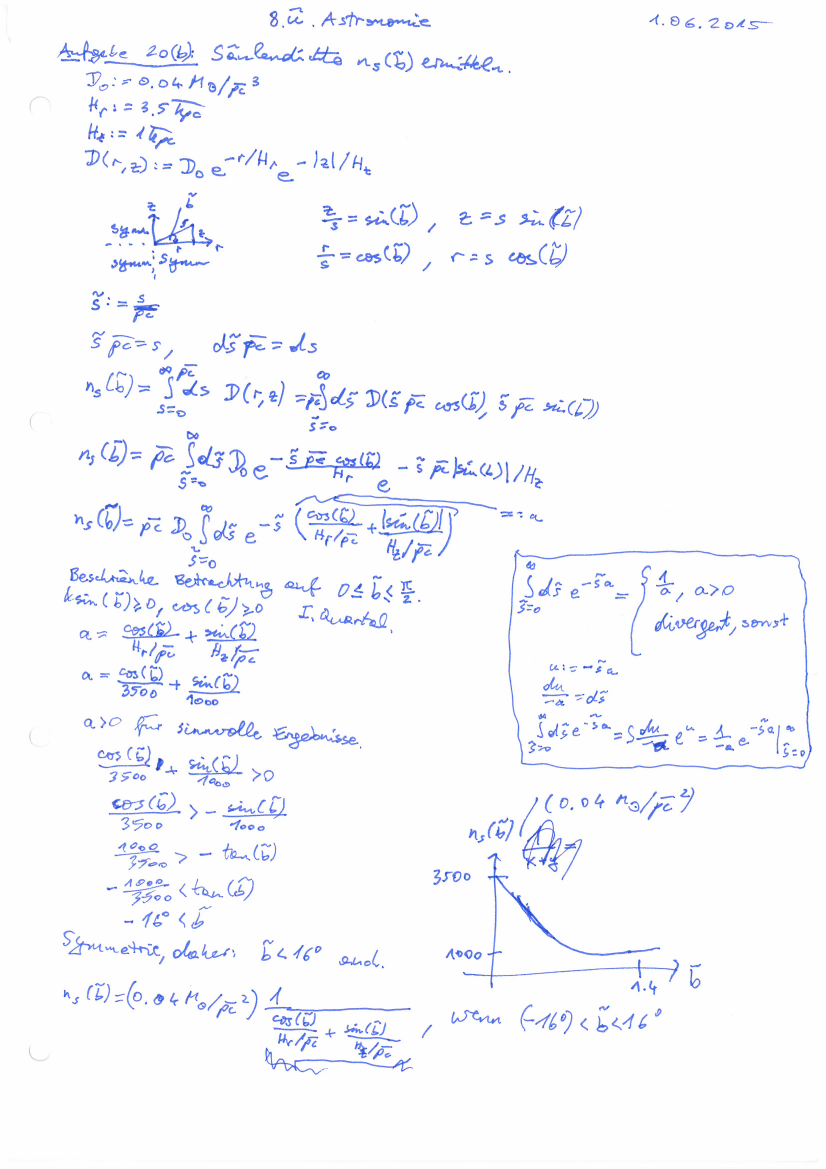 8. Ü. Astronomie 1.06.2015
Aufgabe 20(b): Säulendichte n_s(b̃) ermitteln.
D_0 := 0.04 M_⊙/pc^3
H_r := 3.5 kpc
H_z := 1 kpc
D(r,z) := D_0 e^{-r/H_r} e^{-|z|/H_z}
z b̃
symm. s z r
symm. symm r
z/s = sin(b̃), z = s sin(b̃)
r/s = cos(b̃), r = s cos(b̃)
s̃ := s/pc
s̃ pc = s, ds̃ pc = ds
n_s(b̃) = ∫_{s=0}^{∞ pc} ds D(r,z) = pc ∫_{s̃=0}^{∞} ds̃ D(s̃ pc cos(b̃), s̃ pc sin(b̃))
n_s(b̃) = pc ∫_{s̃=0}^{∞} ds̃ D_0 e^{- s̃ pc cos(b̃)/H_r} e^{- s̃ pc |sin(b)|/H_z}
n_s(b̃) = pc D_0 ∫_{s̃=0}^{∞} ds̃ e^{-s̃ (cos(b̃)/(H_r/pc) + |sin(b̃)|/(H_z/pc))} =: a
Beschränke Betrachtung auf 0 ≤ b̃ ≤ π/2.
sin(b̃) ≥ 0, cos(b̃) ≥ 0 I. Quartal.
a = cos(b̃)/(H_r/pc) + sin(b̃)/(H_z/pc)
a = cos(b̃)/3500 + sin(b̃)/1000
a > 0 für sinnvolle Ergebnisse.
cos(b̃)/3500 + sin(b̃)/1000 > 0
cos(b̃)/3500 > - sin(b̃)/1000
1000/3500 > - tan(b̃)
- 1000/3500 < tan(b̃)
- 16° < b̃
Symmetrie, daher: b̃ < 16° auch.
n_s(b̃) = (0.04 M_⊙/pc^2) 1/(cos(b̃)/(H_r/pc) + sin(b̃)/(H_z/pc)), wenn (-16°) < b̃ < 16°
∫_{s̃=0}^{∞} ds̃ e^{-s̃a} = { 1/a, a > 0
divergent, sonst
u := -s̃a
du/-a = ds̃
∫_{s̃=0}^{∞} ds̃ e^{-s̃a} = ∫ du/-a e^u = 1/-a e^{-s̃a} |_{s̃=0}^{∞}
n_s(b̃) / (0.04 M_⊙/pc^2)
3500
1000
1.4 b̃